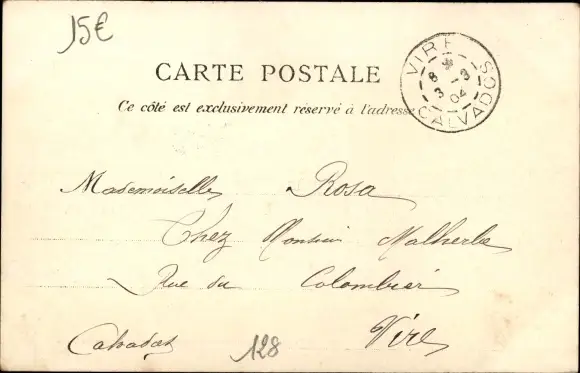 15€
CARTE POSTALE
Ce côté est exclusivement réservé à l'adresse
VIRE
8
3 -3
04
CALVADOS
Mademoiselle Rosa
Chez Monsieur Malherbe
Rue du Colombier
Vire
Calvados
128